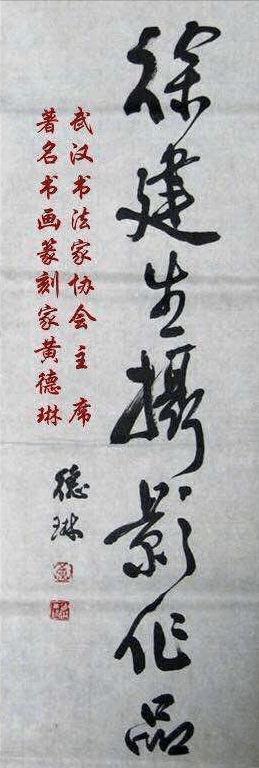 徐建生摄影作品
武汉书法家协会主席
著名书画篆刻家黄德琳
德琳